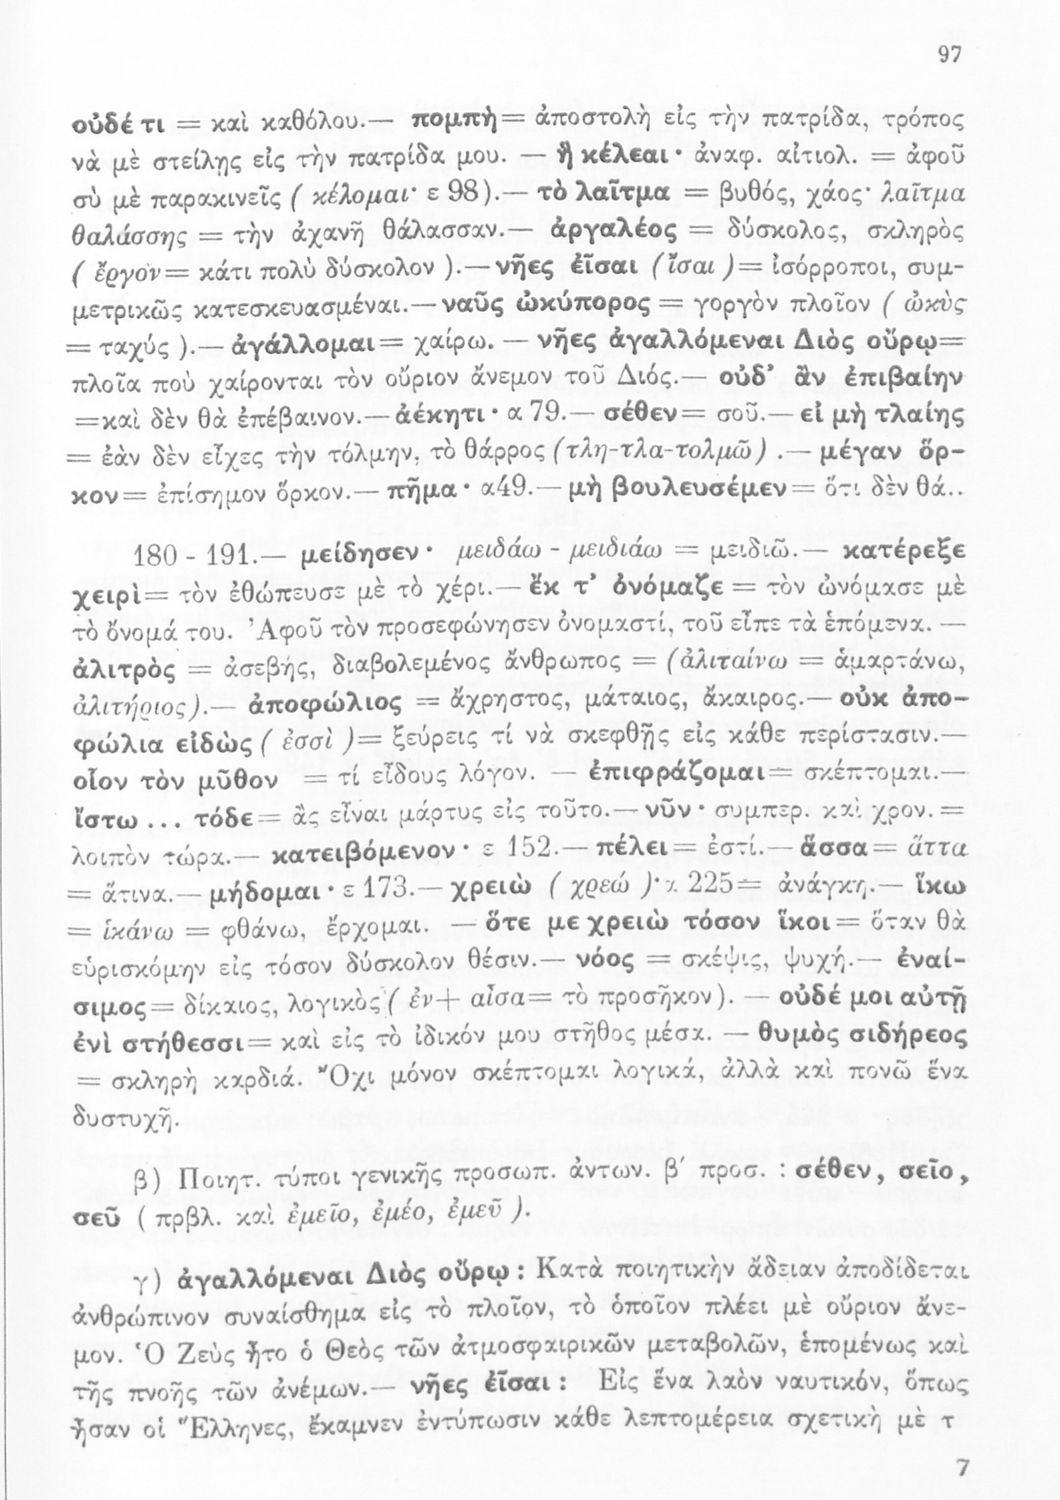 97
οὐδέ τι = καὶ καθόλου.— πομπὴ = ἀποστολὴ εἰς τὴν πατρίδα, τρόπος
νὰ μὲ στείλῃς εἰς τὴν πατρίδα μου. — ἣ κέλεαι· ἀναφ. αἰτιολ. = ἀφοῦ
σὺ μὲ παρακινεῖς ( κέλομαι· ε 98).— τὸ λαῖτμα = βυθός, χάος· λαῖτμα
θαλάσσης = τὴν ἀχανῆ θάλασσαν.— ἀργαλέος = δύσκολος, σκληρὸς
( ἔργον = κάτι πολὺ δύσκολον ).— νῆες ἐῖσαι (ἴσαι ) = ἰσόρροποι, συμ-
μετρικῶς κατεσκευασμέναι.— ναῦς ὠκύπορος = γοργὸν πλοῖον ( ὠκὺς
= ταχύς ).— ἀγάλλομαι = χαίρω. — νῆες ἀγαλλόμεναι Διὸς οὔρῳ =
πλοῖα ποὺ χαίρονται τὸν οὔριον ἄνεμον τοῦ Διός.— οὐδ' ἂν ἐπιβαίην
= καὶ δὲν θὰ ἐπέβαινον.— ἀέκητι· α 79.— σέθεν = σοῦ.— εἰ μὴ τλαίης
= ἐὰν δὲν εἶχες τὴν τόλμην, τὸ θάρρος (τλη-τλα-τολμῶ) .— μέγαν ὅρ-
κον = ἐπίσημον ὅρκον.— πῆμα· α49.— μὴ βουλευσέμεν = ὅτι δὲν θά..
180 - 191.— μείδησεν· μειδάω - μειδιάω = μειδιῶ.— κατέρεξε
χειρὶ = τὸν ἐθώπευσε μὲ τὸ χέρι.— ἔκ τ' ὀνόμαζε = τὸν ὠνόμασε μὲ
τὸ ὄνομά του. Ἀφοῦ τὸν προσεφώνησεν ὀνομαστί, τοῦ εἶπε τὰ ἑπόμενα. —
ἀλιτρὸς = ἀσεβής, διαβολεμένος ἄνθρωπος = (ἀλιταίνω = ἁμαρτάνω,
ἀλιτήριος).— ἀποφώλιος = ἄχρηστος, μάταιος, ἄκαιρος.— οὐκ ἀπο-
φώλια εἰδὼς ( ἐσσὶ ) = ξεύρεις τί νὰ σκεφθῇς εἰς κάθε περίστασιν.—
οἷον τὸν μῦθον = τί εἴδους λόγον. — ἐπιφράζομαι = σκέπτομαι.—
ἴστω ... τόδε = ἂς εἶναι μάρτυς εἰς τοῦτο.— νῦν· συμπερ. καὶ χρον. =
λοιπὸν τώρα.— κατειβόμενον· ε 152.— πέλει = ἐστί.— ἅσσα = ἅττα
= ἅτινα.— μήδομαι· ε 173.— χρειὼ ( χρεώ )· α 225 = ἀνάγκη.— ἵκω
= ἱκάνω = φθάνω, ἔρχομαι. — ὅτε με χρειὼ τόσον ἵκοι = ὅταν θὰ
εὑρισκόμην εἰς τόσον δύσκολον θέσιν.— νόος = σκέψις, ψυχή.— ἐναί-
σιμος = δίκαιος, λογικὸς ( ἐν + αἶσα = τὸ προσῆκον). — οὐδέ μοι αὐτῇ
ἐνὶ στήθεσσι = καὶ εἰς τὸ ἰδικόν μου στῆθος μέσα. — θυμὸς σιδήρεος
= σκληρὴ καρδιά. Ὄχι μόνον σκέπτομαι λογικά, ἀλλὰ καὶ πονῶ ἕνα
δυστυχῆ.
β) Ποιητ. τύποι γενικῆς προσωπ. ἀντων. β' προσ. : σέθεν, σεῖο,
σεῦ ( πρβλ. καὶ ἐμεῖο, ἐμέο, ἐμεῦ ).
γ) ἀγαλλόμεναι Διὸς οὔρῳ : Κατὰ ποιητικὴν ἄδειαν ἀποδίδεται
ἀνθρώπινον συναίσθημα εἰς τὸ πλοῖον, τὸ ὁποῖον πλέει μὲ οὔριον ἄνε-
μον. Ὁ Ζεὺς ἦτο ὁ Θεὸς τῶν ἀτμοσφαιρικῶν μεταβολῶν, ἑπομένως καὶ
τῆς πνοῆς τῶν ἀνέμων.— νῆες ἐῖσαι : Εἰς ἕνα λαὸν ναυτικόν, ὅπως
ἦσαν οἱ Ἕλληνες, ἔκαμνεν ἐντύπωσιν κάθε λεπτομέρεια σχετικὴ μὲ τ
7